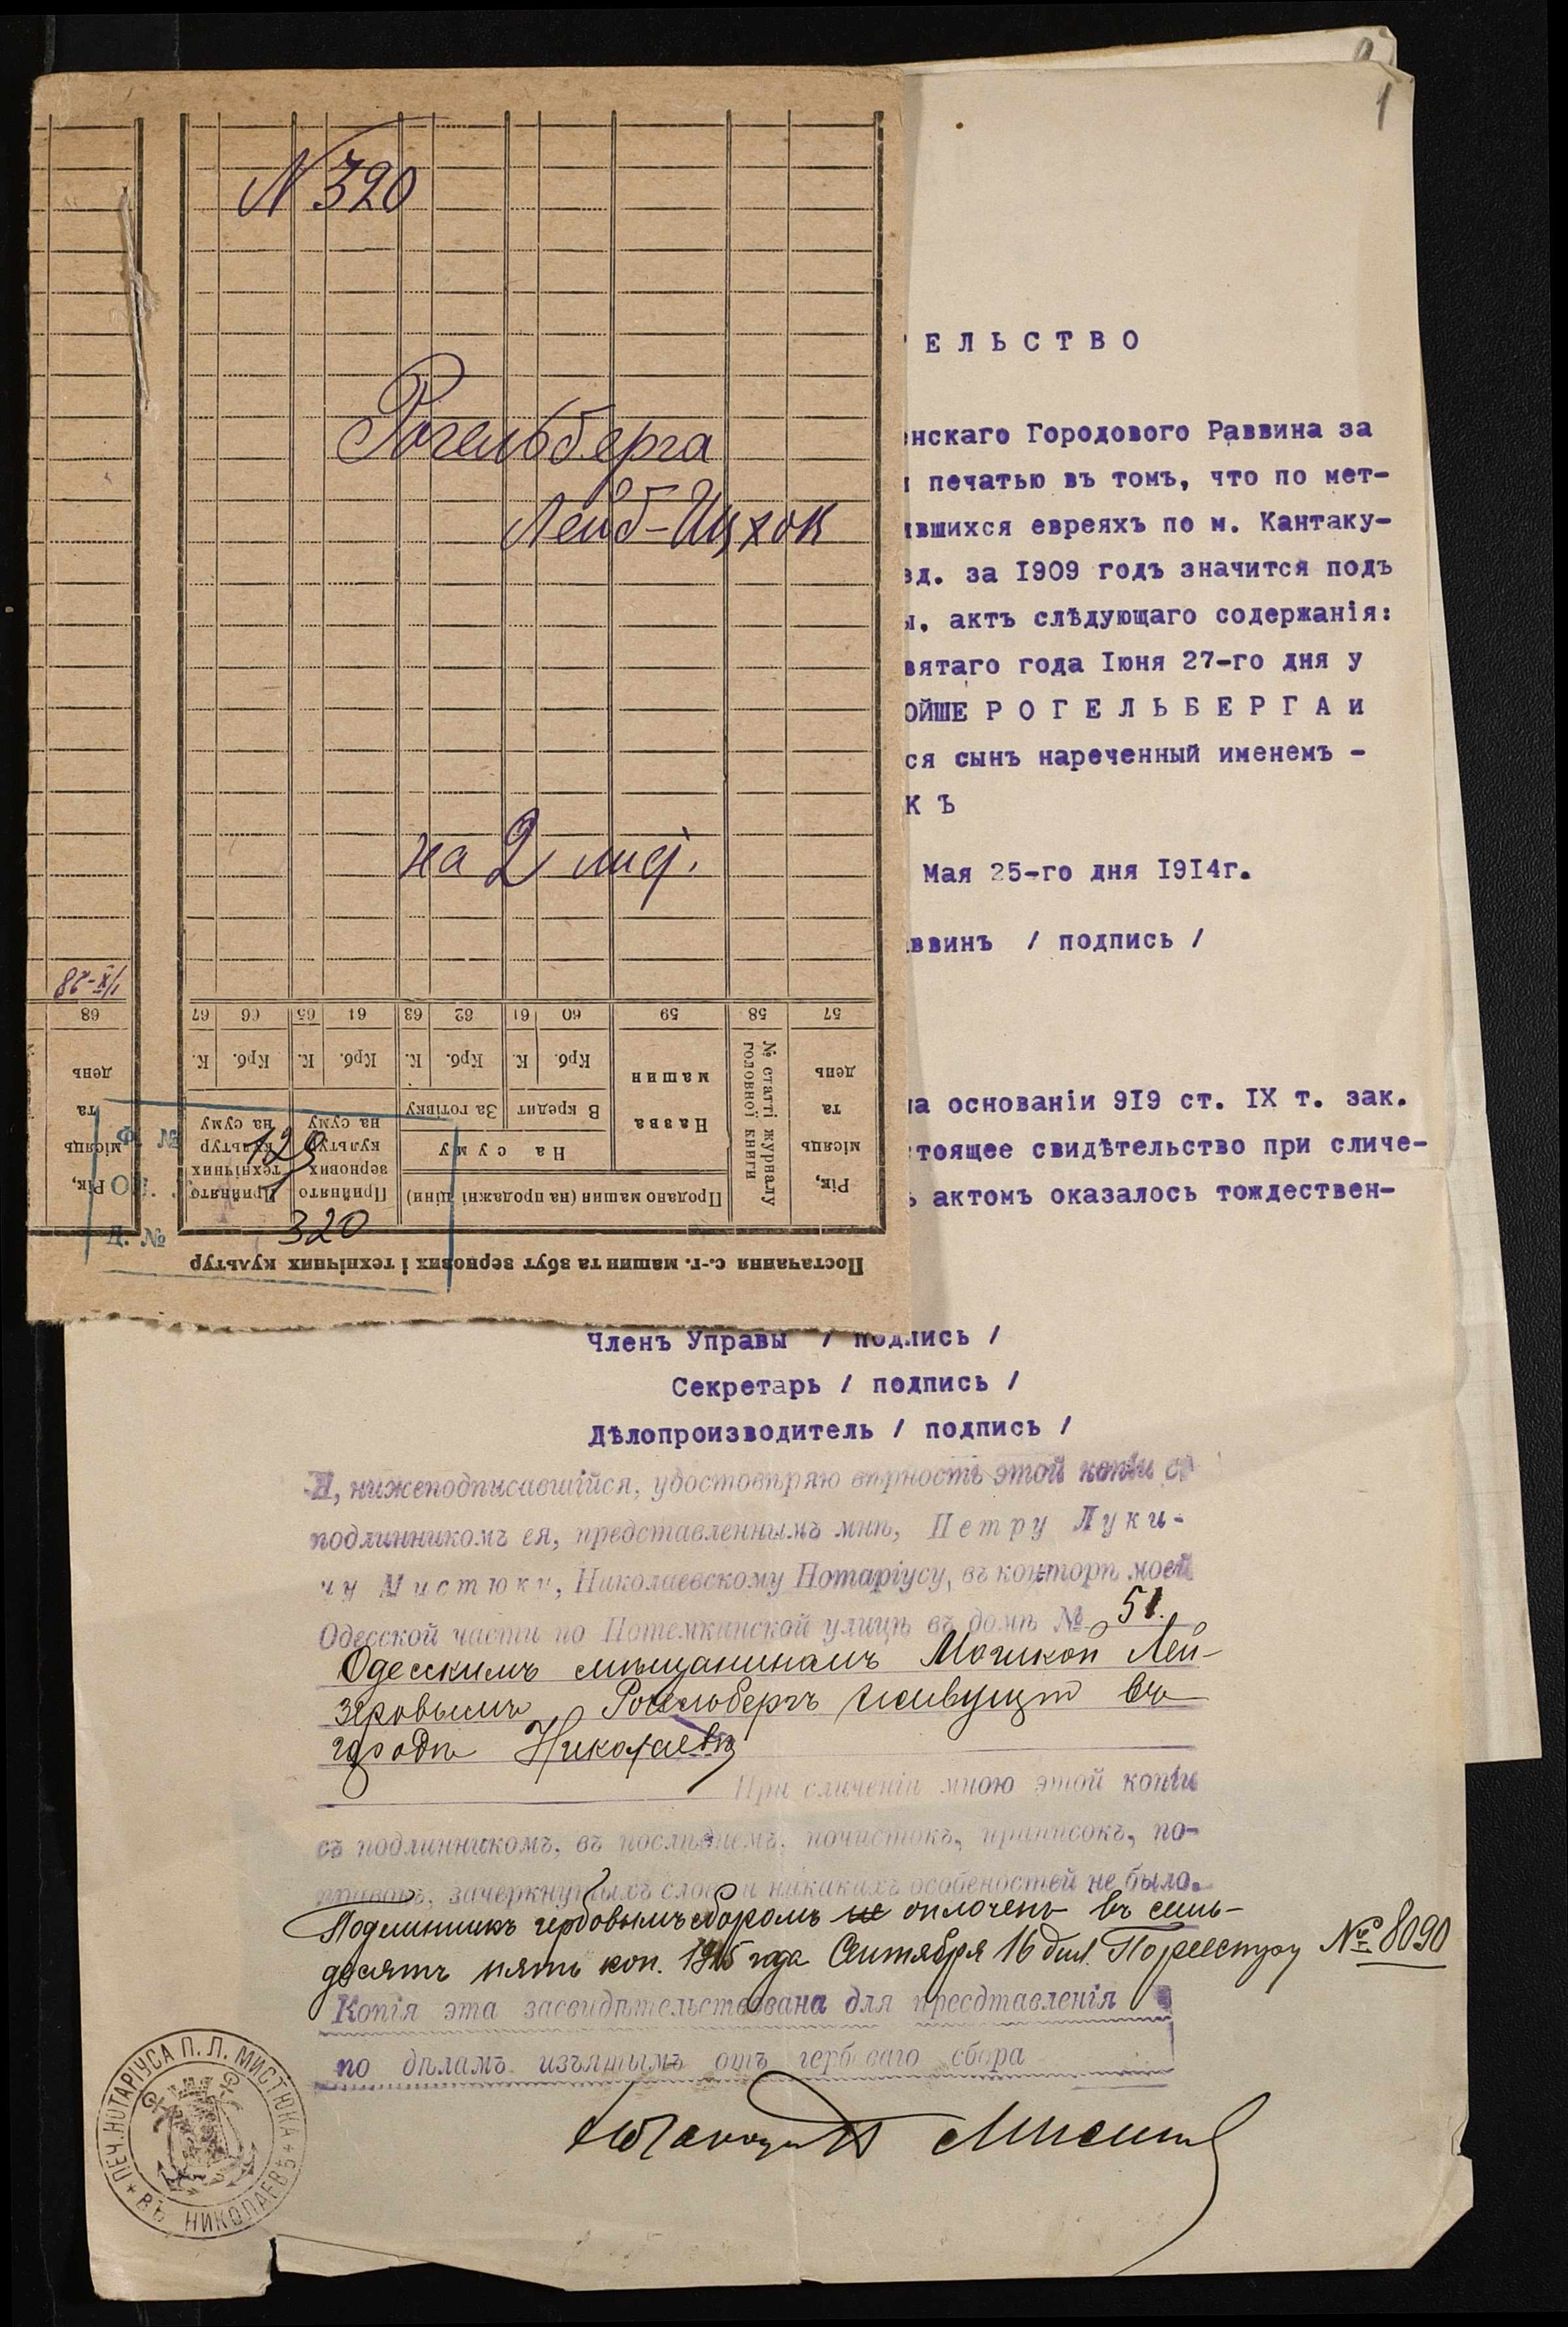 1
N 320
Рогельберга
Лейб-Ицхок
на 2 лис.
1/X-28
57
58
59
60
61
62
63
64
65
66
67
68
Рік,
місяць
та
день
№ статті журналу
головної книги
Назва
машин
Крб.
К.
Крб.
К.
Крб.
К.
Крб.
К.
В кредит
За готівку
На суму
Продано машин (на продажні ціни)
Прийнято
зернових
культур
на суму
Прийнято
технічних
культур
на суму
Рік,
місяць
та
день
Ф. №
129
О.
Д. №
320
Постачання с.-г. машин та збут зернових і технічних культур
ЕЛЬСТВО
нскаго Городового Раввина за
печатью въ томъ, что по мет-
вшихся евреяхъ по м. Кантаку-
зд. за 1909 годъ значится подъ
ы. актъ слѣдующаго содержанія:
вятаго года Іюня 27-го дня у
ОЙШЕ РОГЕЛЬБЕРГА и
ся сынъ нареченный именемъ -
КЪ
Мая 25-го дня 1914г.
аввинъ / подпись /
а основаніи 919 ст. IX т. зак.
тоящее свидѣтельство при сличе-
ъ актомъ оказалось тождествен-
Членъ Управы / подпись /
Секретарь / подпись /
Дѣлопроизводитель / подпись /
Я, нижеподписавшійся, удостовѣряю вѣрность этой копіи съ
подлинникомъ ея, представленнымъ мнѣ, Петру Луки-
чу Мистюку, Николаевскому Нотаріусу, въ конторѣ моей
Одесской части по Потемкинской улицѣ въ домѣ № 51.
Одесскимъ мѣщаниномъ Мошкой Лей-
зеровымъ Рогельбергъ живущимъ въ
городѣ Николаевѣ
При сличеніи мною этой копіи
съ подлинникомъ, въ послѣднемъ, почистокъ, приписокъ, по-
правокъ, зачеркнутыхъ словъ и никакихъ особеностей не было.
Подлинникъ гербовымъ сборомъ не оплоченъ въ семь-
десятъ пять коп. 1915 года Сентября 16 дня. По реестру № 8090
Копія эта засвидѣтельствована для пресдтавленія
по дѣламъ изъятымъ отъ гербоваго сбора
Нотаріусъ Мистюкъ
ПЕЧ. НОТАРІУСА П. Л. МИСТЮКА
ВЪ НИКОЛАЕВѢ